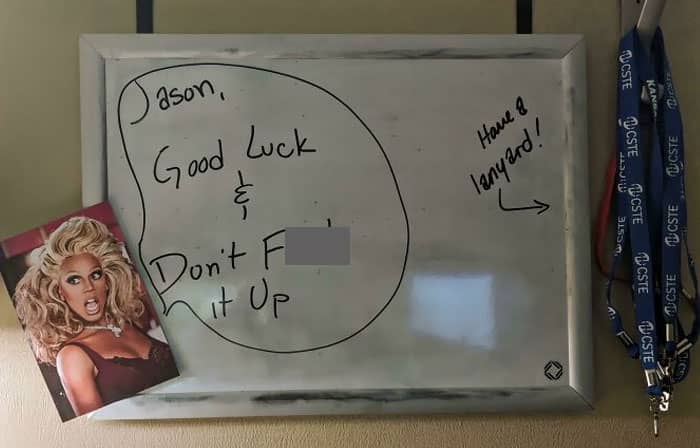 Jason,
Good Luck
&
Don't F
it Up
Have a
lanyard!
CSTE
KANSA
CSTE
CSTE
CSTE
CSTE
CSTE
CSTE
CSTE
CSTE
CSTE